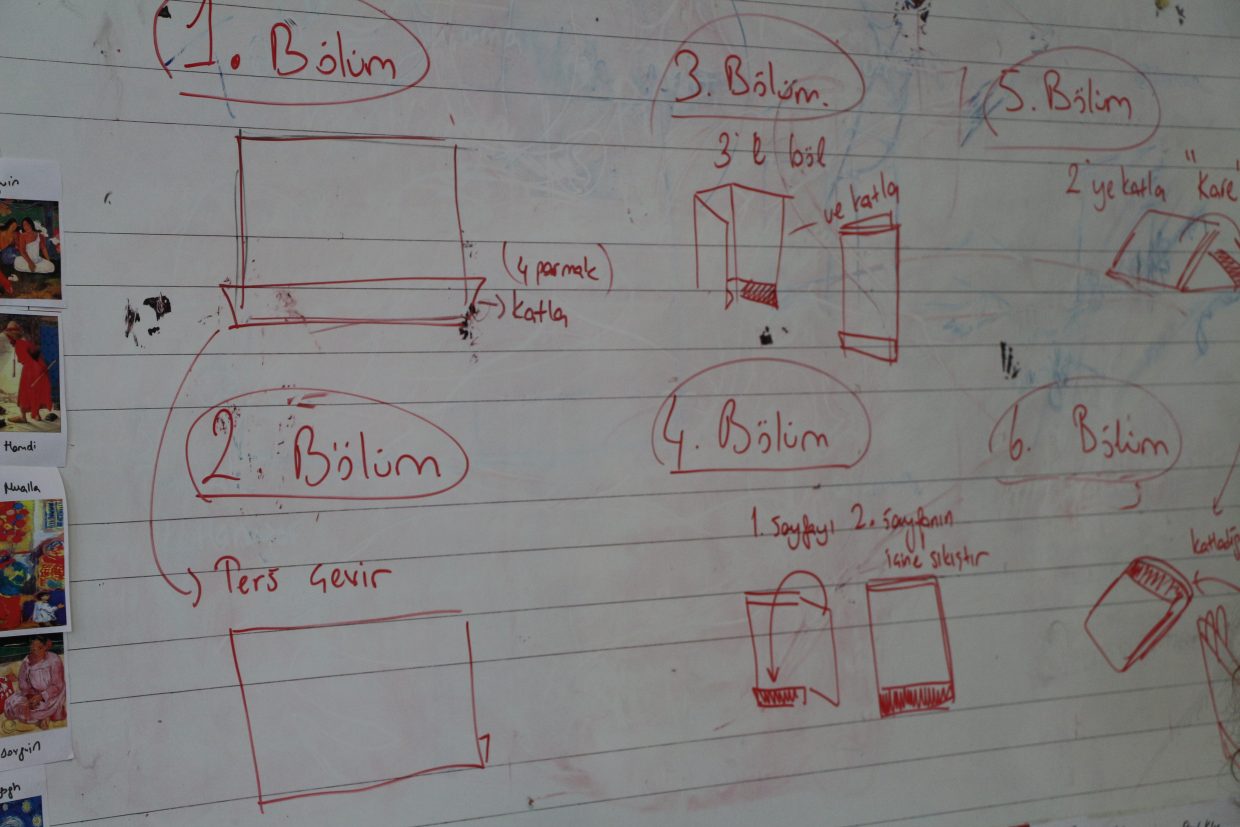 1. Bölüm
(4 parmak)
katla
2. Bölüm
Ters çevir
3. Bölüm.
3'e böl
ve katla
4. Bölüm
1. Sayfayı 2. sayfanın
içine sıkıştır
5. Bölüm
2'ye katla "Kare"
6. Bölüm
Hamdi
Mualla